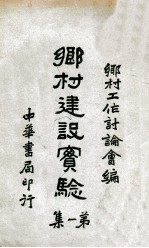 鄉村工作討論會編
鄉村建設實驗
第一集
中華書局印行